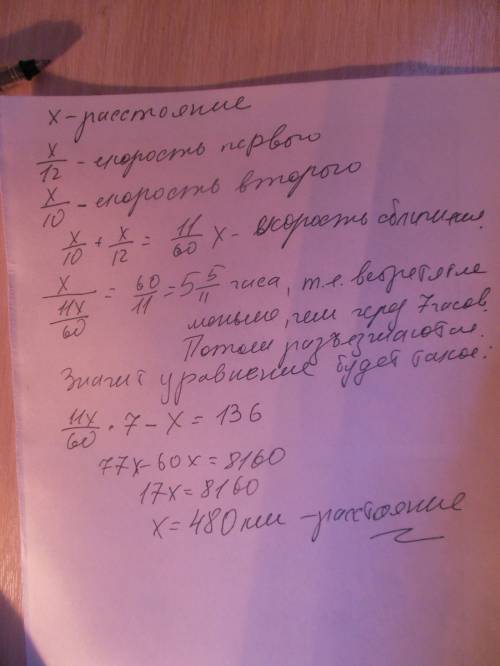 x - расстояние
x/12 - скорость первого
x/10 - скорость второго
x/10 + x/12 = 11/60 x - скорость сближения.
x/(11x/60) = 60/11 = 5 5/11 часа, т.е. встретятся
меньше, чем через 7 часов.
Потом разъезжаются.
Значит уравнение будет такое:
11x/60 • 7 - x = 136
77x - 60x = 8160
17x = 8160
x = 480 км - расстояние